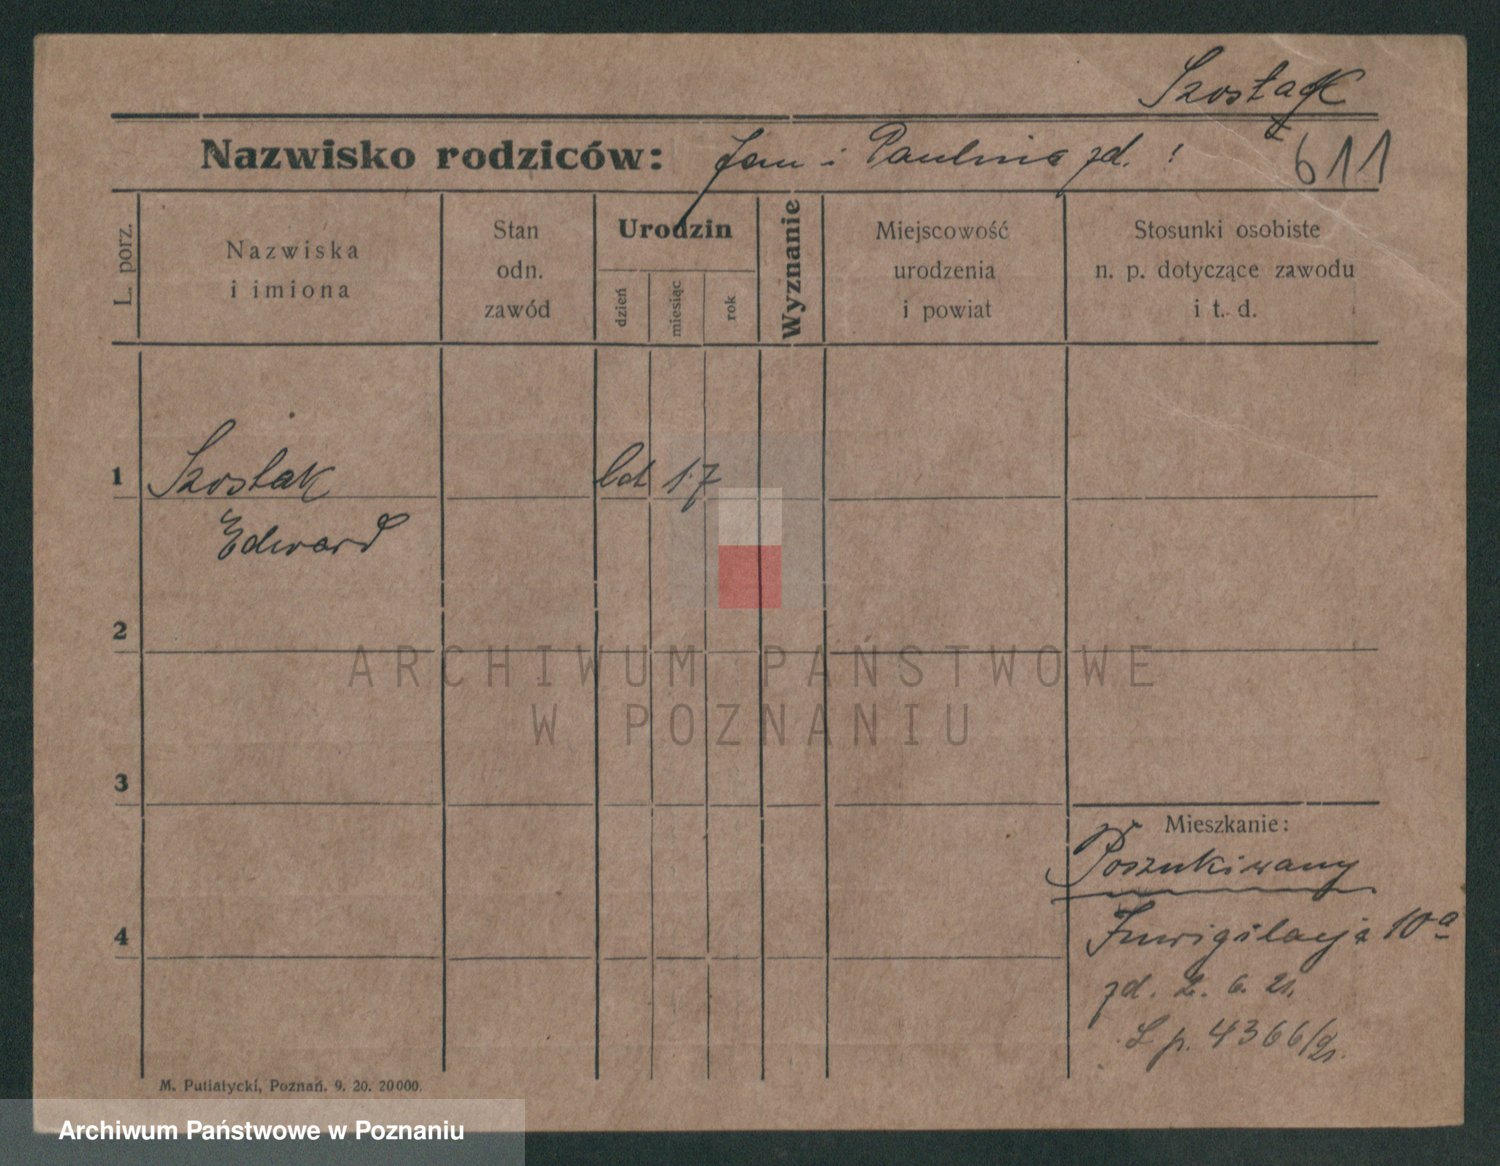 Szostak
Nazwisko rodziców: Jan i Paulina zd. !
611
L. porz.
Nazwiska
i imiona
Stan
odn.
zawód
Urodzin
dzień
miesiąc
rok
Wyznanie
Miejscowość
urodzenia
i powiat
Stosunki osobiste
n. p. dotyczące zawodu
i t. d.
1 Szostak lat 17
Edward
2
ARCHIWUM PAŃSTWOWE
W POZNANIU
3
Mieszkanie:
Poszukiwany
Inwigilacja 10a
4
zd. 2. 6. 21.
L p. 4366/21.
M. Putiatycki, Poznań. 9. 20. 20000.
Archiwum Państwowe w Poznaniu